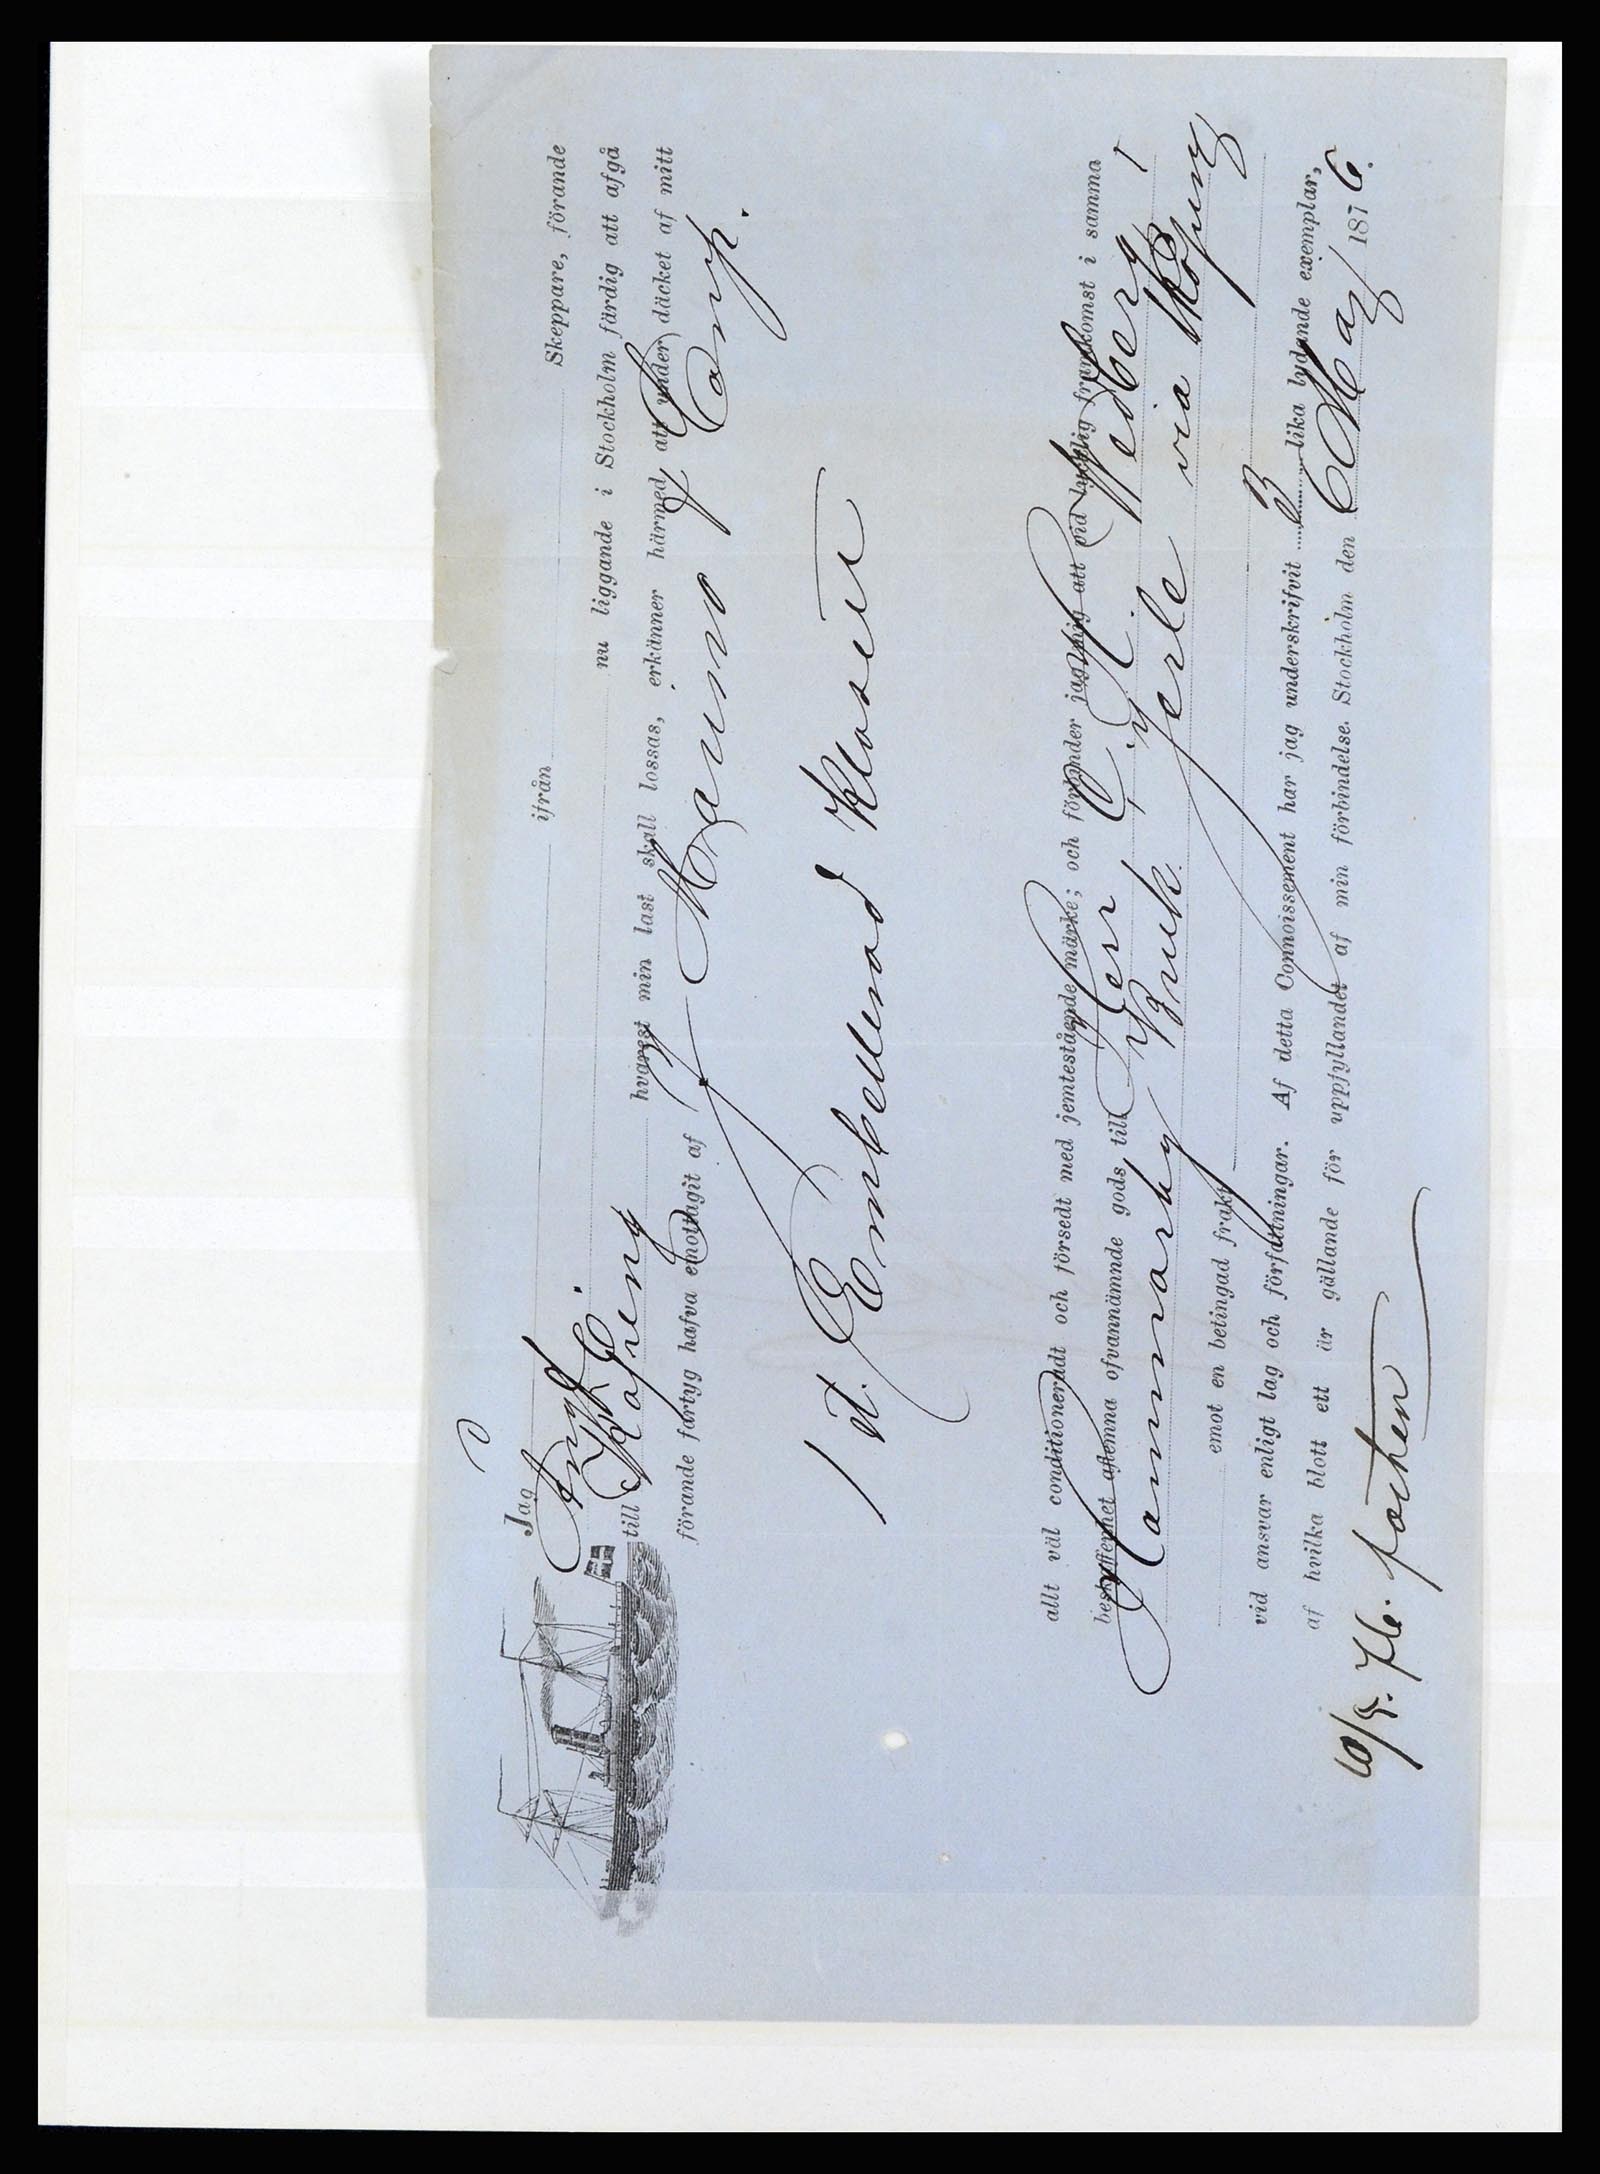 Jag ifrån Skeppare, förande
Ångf.
nu liggande i Stockholm färdig att afgå
till Köping hvarest min last skall lossas, erkänner härmed att under däcket af mitt
förande fartyg hafva emottagit af Manns & Comp.
1 st. Emballerad Klosett
allt väl conditioneradt och försedt med jemtestående märke; och förbinder jag mig att vid lycklig framkomst i samma
beskaffenhet aflemna ofvannämnde gods till Herr C. A. Wedberg
Hammarby Bruk Jerle via Köping
emot en betingad frakt
vid ansvar enligt lag och författningar. Af detta Connoissement har jag underskrifvit 3 lika lydande exemplar,
af hvilka blott ett är gällande för uppfyllandet af min förbindelse. Stockholm den Maj 1876.